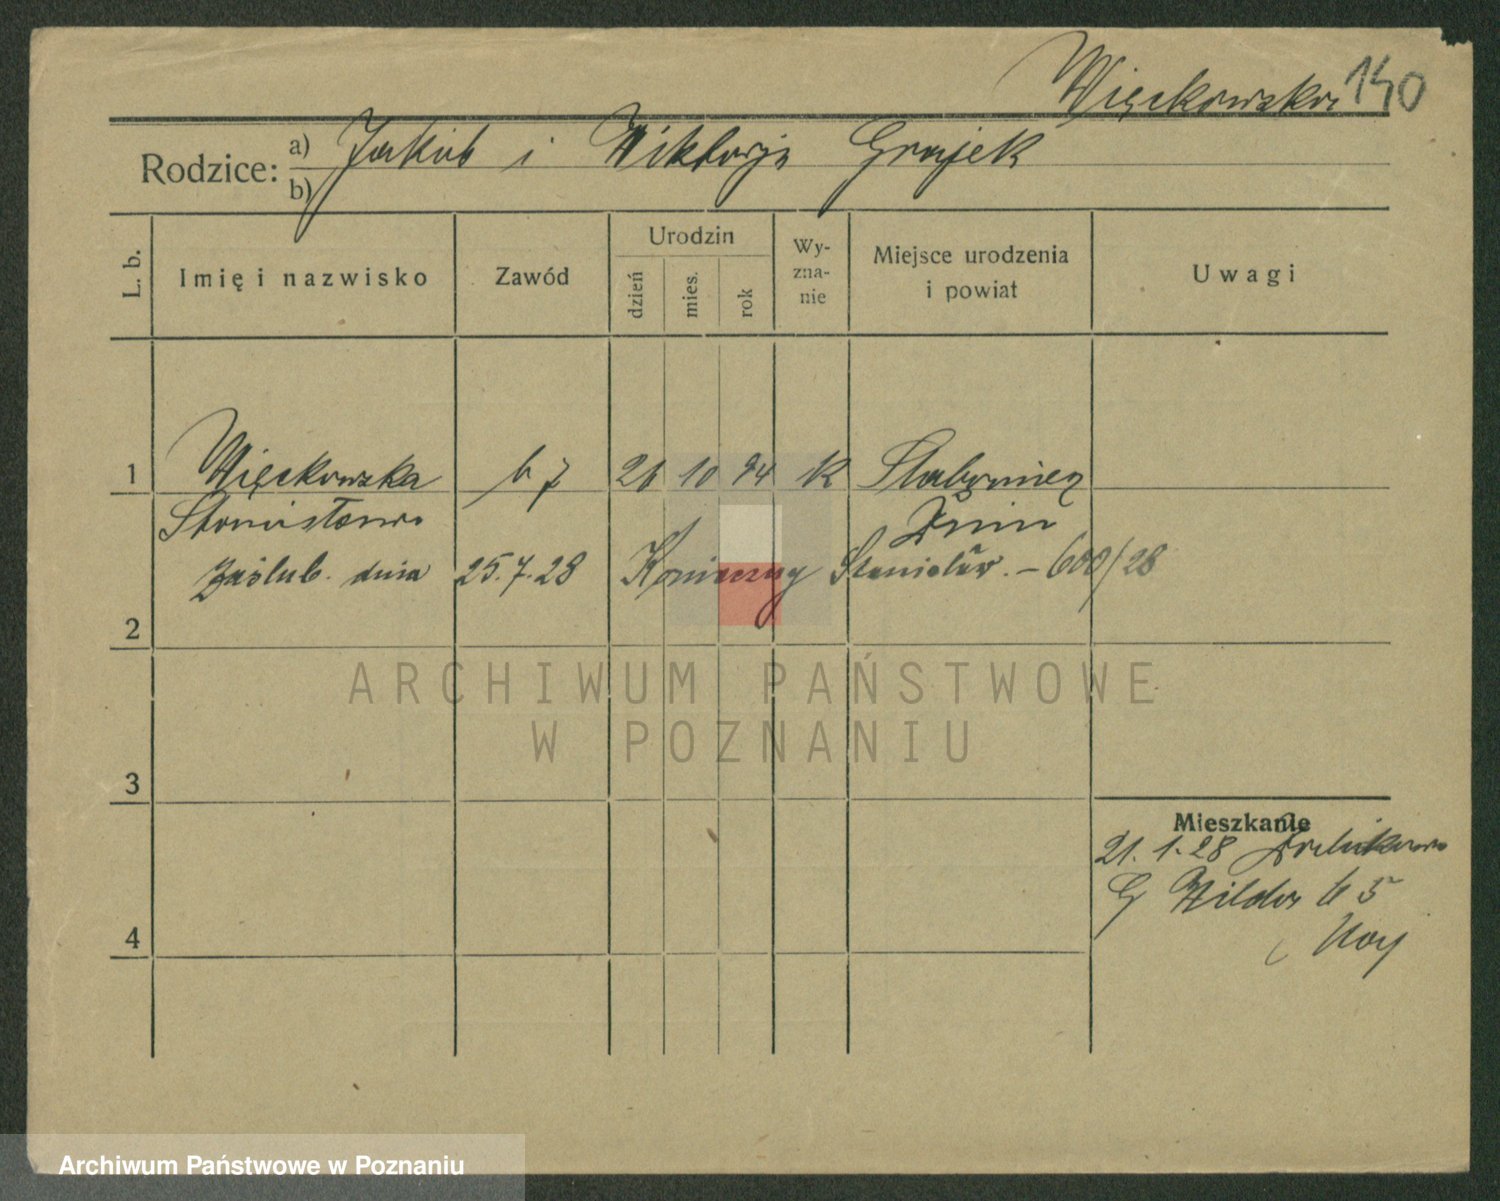 Więckowska 140
Rodzice: a) Jakub i Wiktorja Grajek
b)
L. b. Imię i nazwisko Zawód Urodzin dzień mies. rok Wy-zna-nie Miejsce urodzenia i powiat Uwagi
1 Więckowska 26 10 94 K
Stanisława Żnin
Zaślub. dnia 25.7.28 Konieczny Stanisław. – 600/28
2
3
Mieszkanie
21. 1. 28
4 G Wilda 65
ARCHIWUM PAŃSTWOWE
W POZNANIU
Archiwum Państwowe w Poznaniu